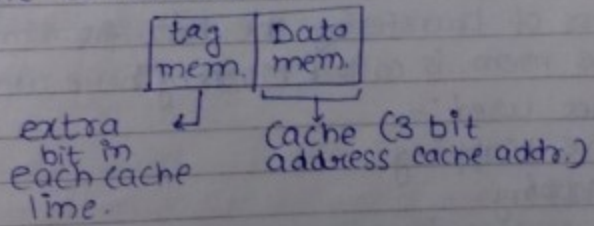 tag
mem.
Data
mem.
extra
bit in
each cache
line.
cache (3 bit
address cache addr.)